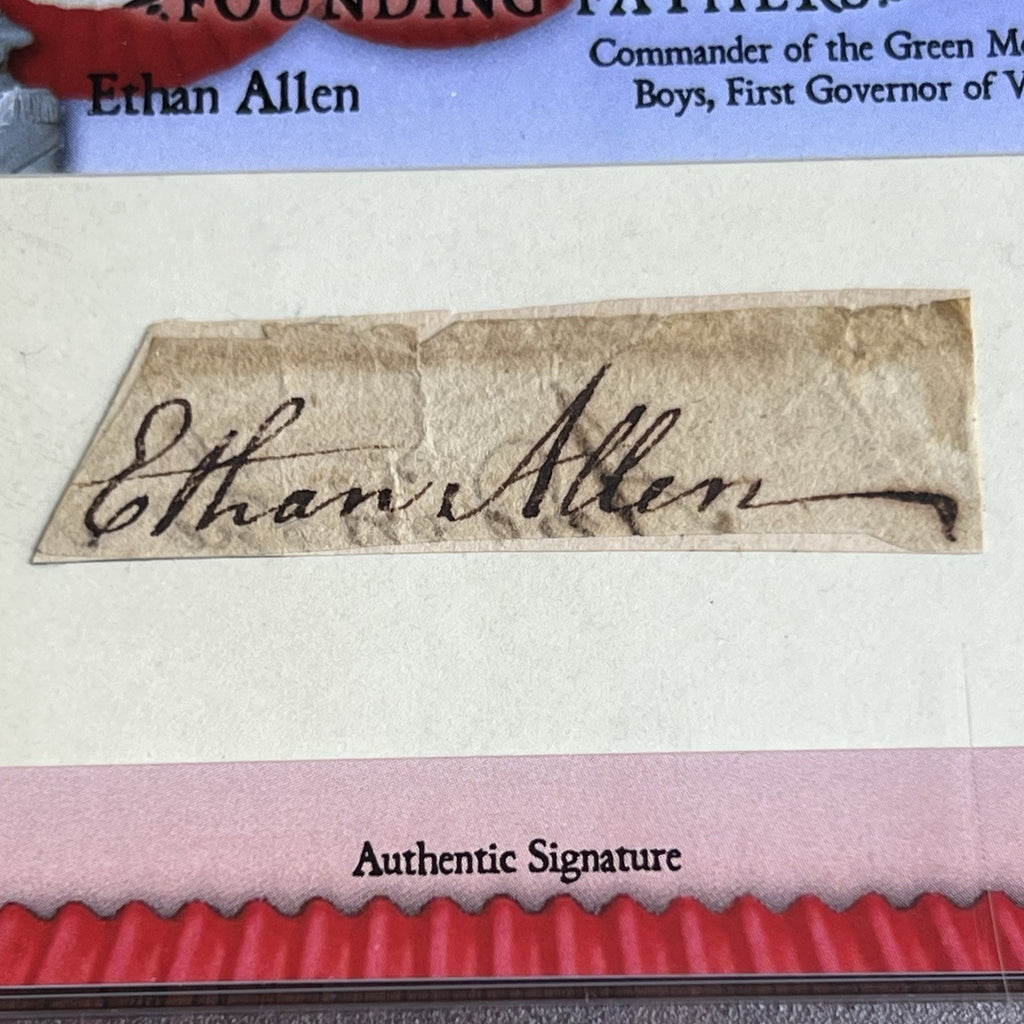 FOUNDING FATHERS
Ethan Allen
Commander of the Green
Boys, First Governor of
Ethan Allen
Authentic Signature